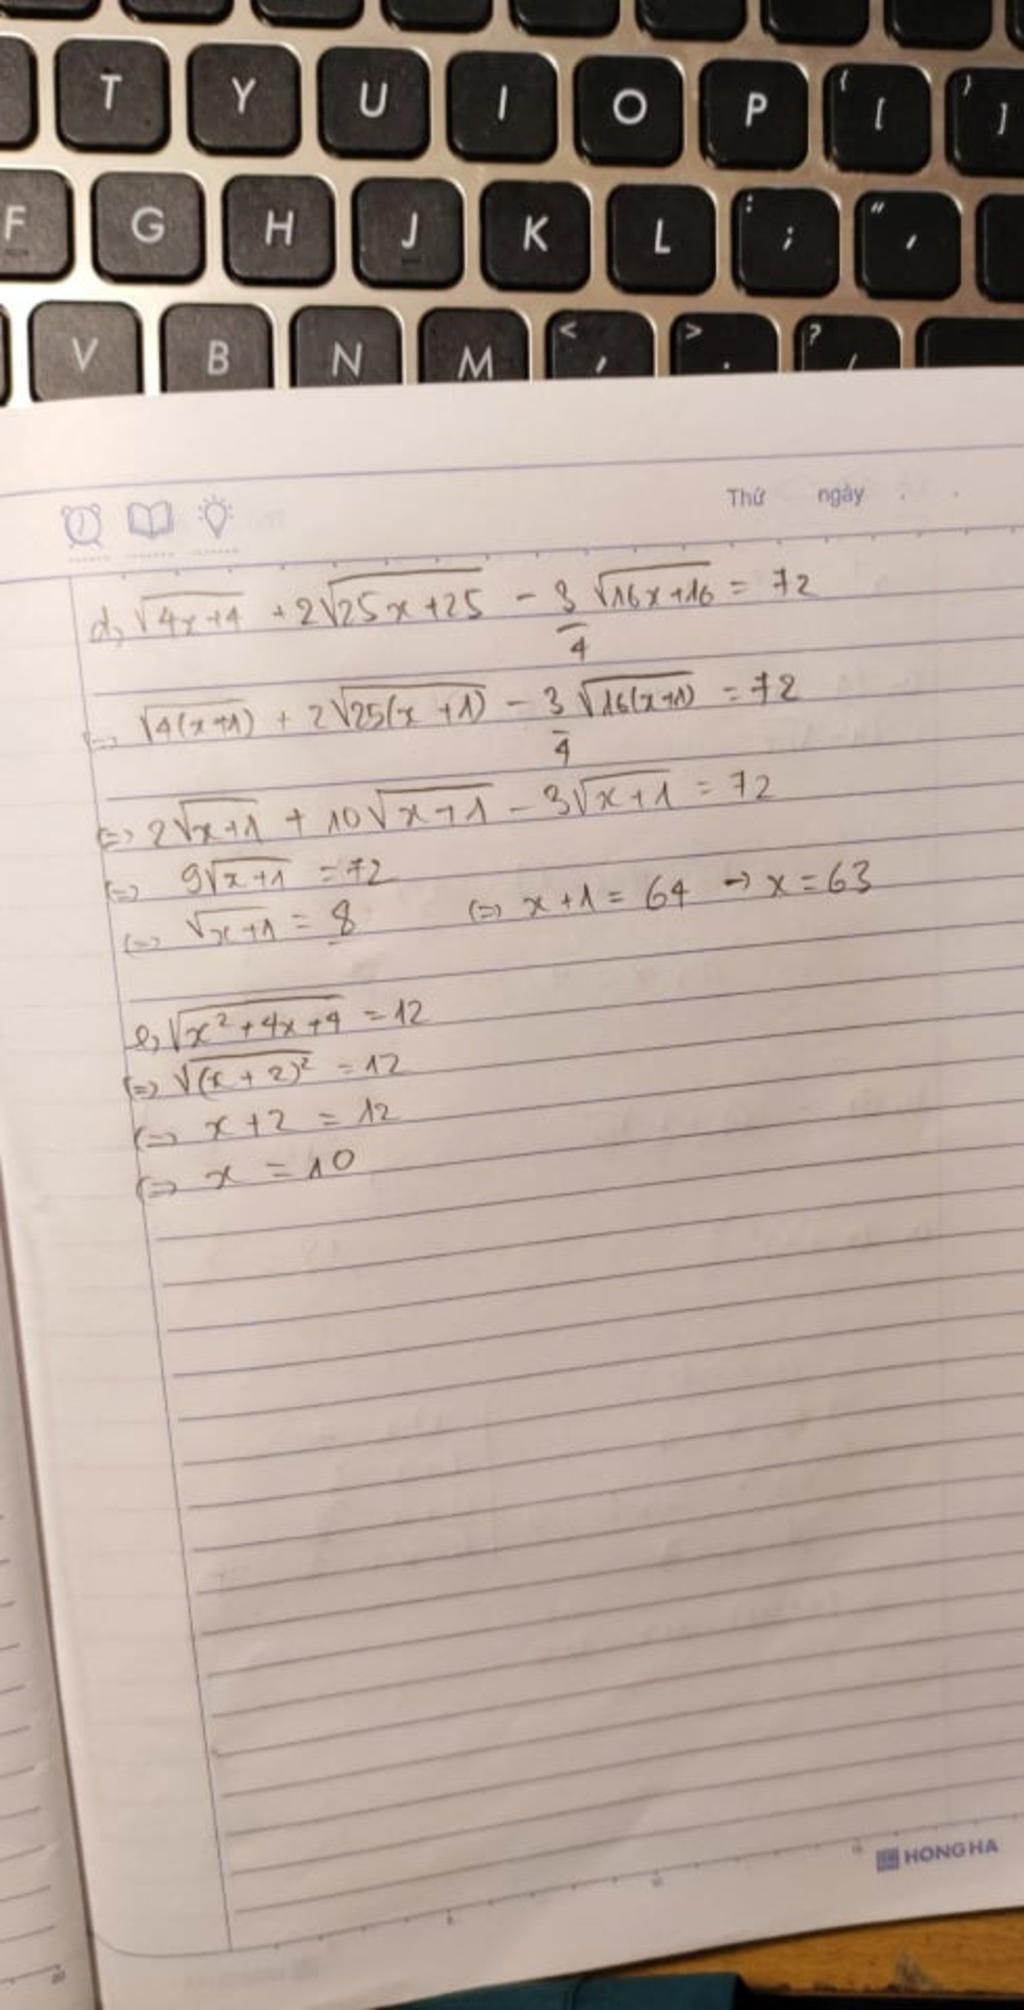 T Y U I O P { [ } ]
F G H J K L : ; " '
V B N M < , > . ? /
Thứ ngày
d, √4x+4 + 2√25x+25 - 3/4 √16x+16 = 72
<=> √4(x+1) + 2√25(x+1) - 3/4 √16(x+1) = 72
<=> 2√x+1 + 10√x+1 - 3√x+1 = 72
<=> 9√x+1 = 72
<=> √x+1 = 8 <=> x+1 = 64 → x = 63
e, √x²+4x+4 = 12
<=> √(x+2)² = 12
<=> x+2 = 12
<=> x = 10
HONG HA